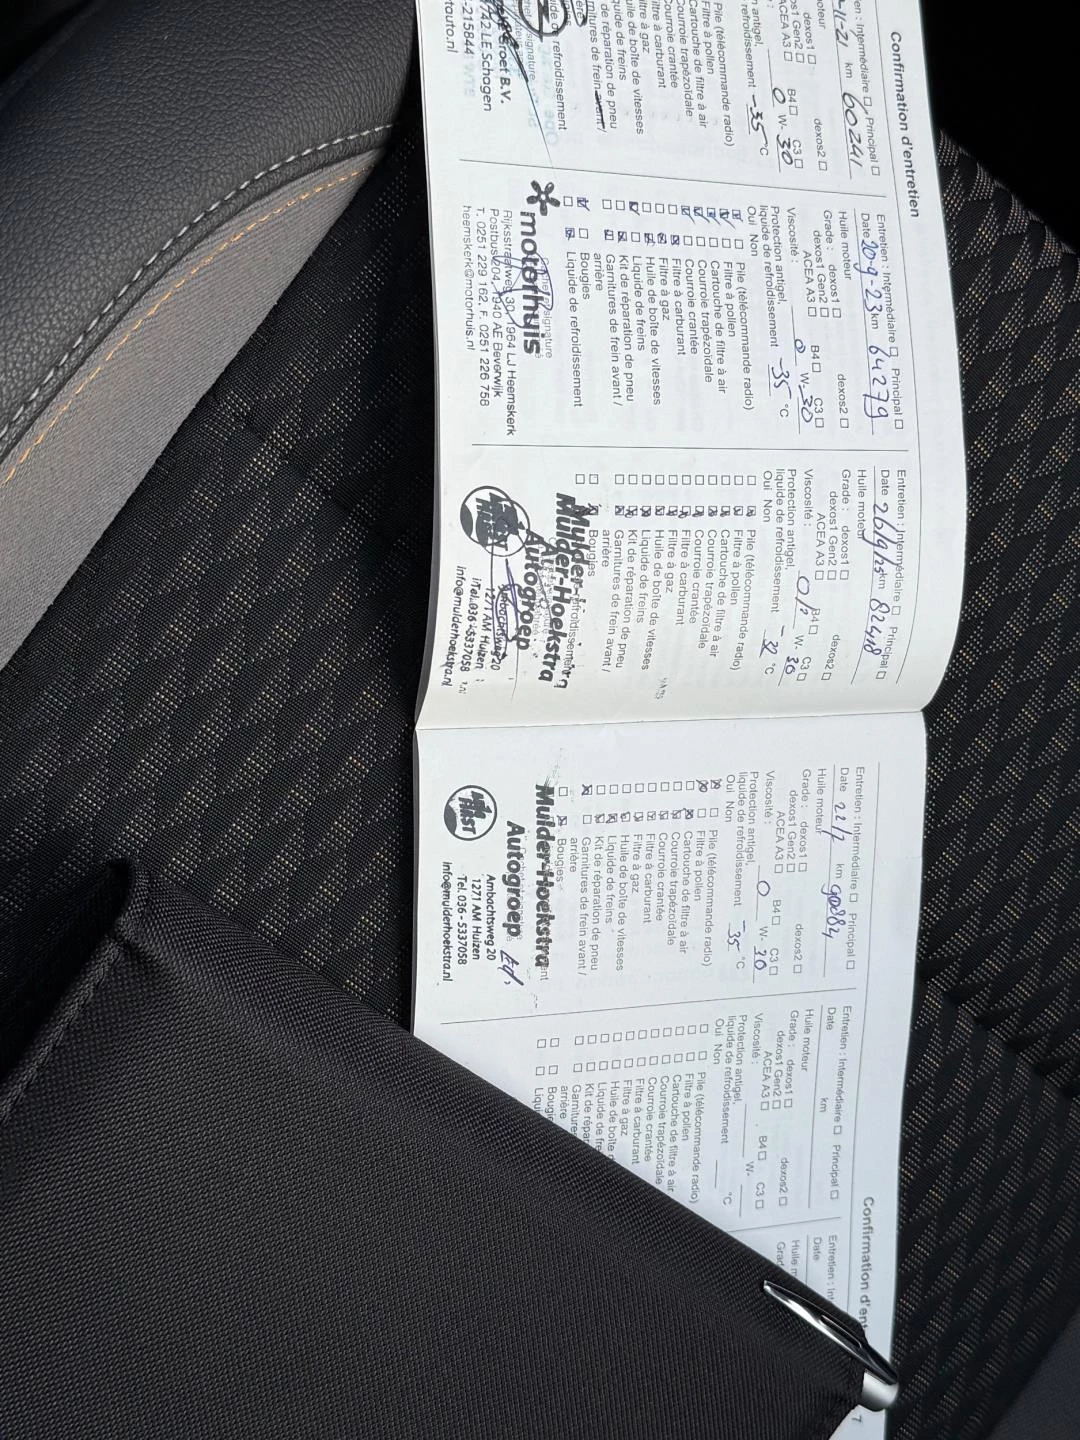 Confirmation d'entretien
Entretien : Intermédiaire Principal
11-21 km 60241
moteur
dexos1 dexos2
dexos1 Gen2
ACEA A3 B4 C3
0 W- 30
antigel,
refroidissement -35 °C
Pile (télécommande radio)
Filtre à pollen
Cartouche de filtre à air
Courroie trapézoïdale
Courroie crantée
Filtre à carburant
Filtre à gaz
Huile de boîte de vitesses
Liquide de freins
de réparation de pneu
Garnitures de frein avant /
refroidissement
signature
Groet B.V.
1742 LE Schagen
-215844
touto.nl
Entretien : Intermédiaire Principal
Date 20-9-23 km 64279
Huile moteur
Grade : dexos1 dexos2
dexos1 Gen2
ACEA A3 B4 C3
Viscosité : 0 W- 30
Protection antigel,
liquide de refroidissement -35 °C
Oui Non
Pile (télécommande radio)
Filtre à pollen
Cartouche de filtre à air
Courroie trapézoïdale
Courroie crantée
Filtre à carburant
Filtre à gaz
Huile de boîte de vitesses
Liquide de freins
Kit de réparation de pneu
Garnitures de frein avant /
arrière
Bougies
Liquide de refroidissement
signature
motorhuis
Rijksstraatweg 30, 1964 LJ Heemskerk
Postbus 204, 1940 AE Beverwijk
T. 0251 229 162, F. 0251 226 758
heemskerk@motorhuis.nl
Entretien : Intermédiaire Principal
Date 26/9/25 km 82418
Huile moteur
Grade : dexos1 dexos2
dexos1 Gen2
ACEA A3 B4 C3
Viscosité : 0 W- 30
Protection antigel,
liquide de refroidissement -32 °C
Oui Non
Pile (télécommande radio)
Filtre à pollen
Cartouche de filtre à air
Courroie trapézoïdale
Courroie crantée
Filtre à carburant
Filtre à gaz
Huile de boîte de vitesses
Liquide de freins
Kit de réparation de pneu
Garnitures de frein avant /
arrière
Bougies
refroidissement
Mulder-Hoekstra
Autogroep
Ambachtsweg 20
1271 AM Huizen
Tel. 036 - 5337058
info@mulderhoekstra.nl
Entretien : Intermédiaire Principal
Date 22/7 km 90884
Huile moteur
Grade : dexos1 dexos2
dexos1 Gen2
ACEA A3 B4 C3
Viscosité : 0 W- 30
Protection antigel,
liquide de refroidissement -35 °C
Oui Non
Pile (télécommande radio)
Filtre à pollen
Cartouche de filtre à air
Courroie trapézoïdale
Courroie crantée
Filtre à carburant
Filtre à gaz
Huile de boîte de vitesses
Liquide de freins
Kit de réparation de pneu
Garnitures de frein avant /
arrière
Bougies
Mulder-Hoekstra
Autogroep
Ambachtsweg 20
1271 AM Huizen
Tel. 036 - 5337058
info@mulderhoekstra.nl
Confirmation d'ent
Entretien : Intermédiaire Principal
Date km
Huile moteur
Grade : dexos1 dexos2
dexos1 Gen2
ACEA A3 B4 C3
Viscosité : W-
Protection antigel,
liquide de refroidissement °C
Oui Non
Pile (télécommande radio)
Filtre à pollen
Cartouche de filtre à air
Courroie trapézoïdale
Courroie crantée
Filtre à carburant
Filtre à gaz
Huile de boîte
Liquide de fre
Kit de répar
Garnitures
arrière
Bougie
Liqui
Entretien : Int
Date
Huile m
Grad
7